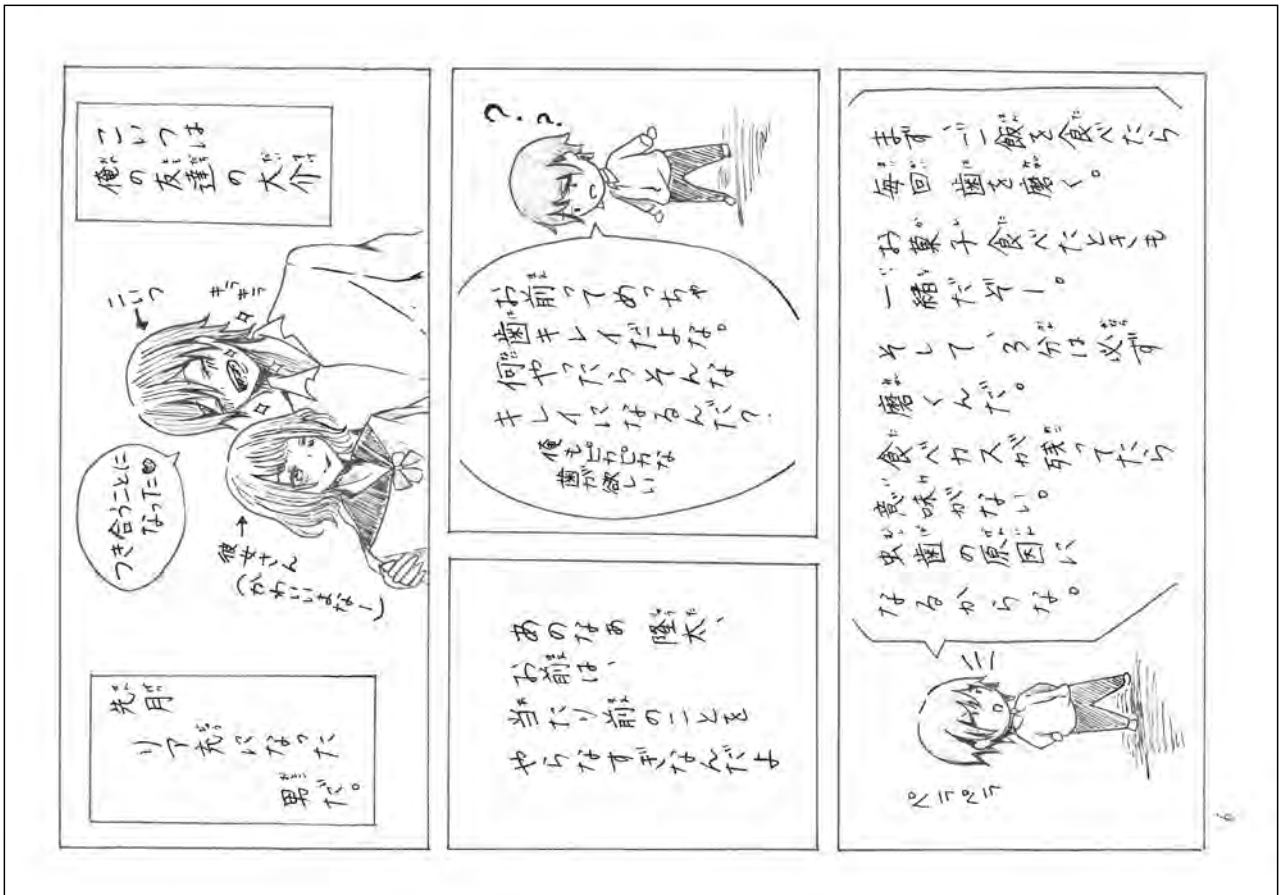 こいつは
俺の友達の大介
こいつ
キラキラ
つき合うことに
なった♥
彼女さん
(かわいいよなー)
先月
リア充になった
男だ。
？？
お前ってめっちゃ
歯キレイだよな。
何やったらそんな
キレイになるんだ？
俺もピカピカな
歯が欲しい
あのなあ 隆太、
お前は、
当たり前のことを
やらなすぎなんだよ
まず、ご飯を食べたら
毎回 歯を磨く。
お菓子食べたときも
一緒だぞー。
そして、3分は必ず
磨くんだ。
食べカスが残ってたら
意味がない。
虫歯の原因に
なるからな。
ペラペラ
6